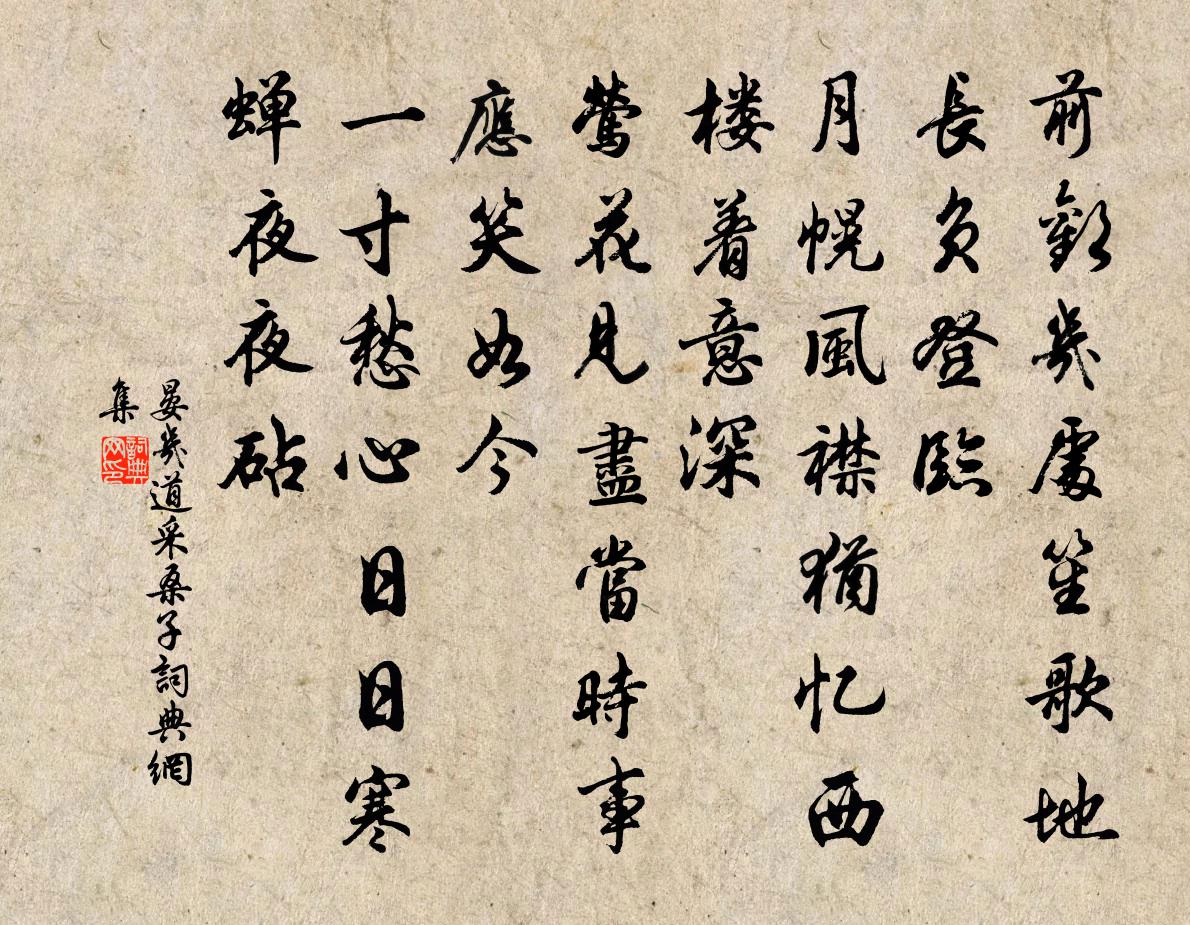 前歡幾處笙歌地
長負登臨
月幌風襟猶忆西
楼着意深
鶯花見盡當時事
應笑如今
一寸愁心日日寒
蝉夜夜砧
晏幾道采桑子詞典網
集
詞典
网印